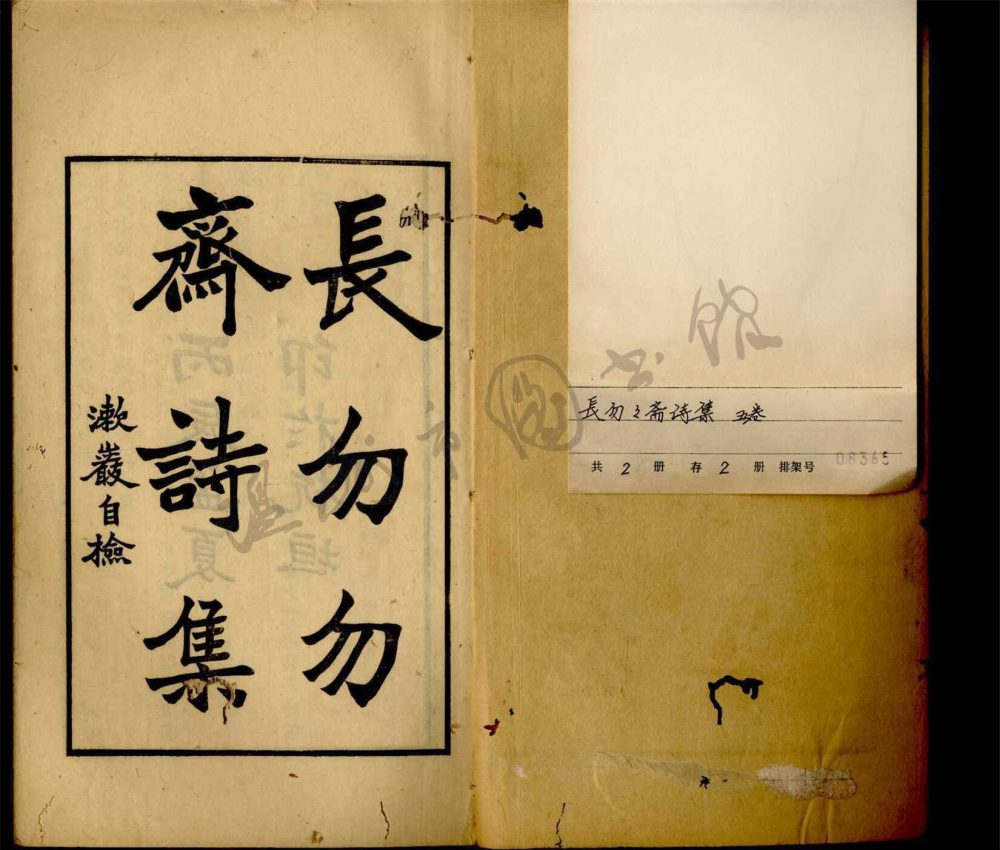 長勿勿
齋詩集
漱巖自檢
長勿々斋詩集 五卷
共 2 册 存 2 册 排架号 08365